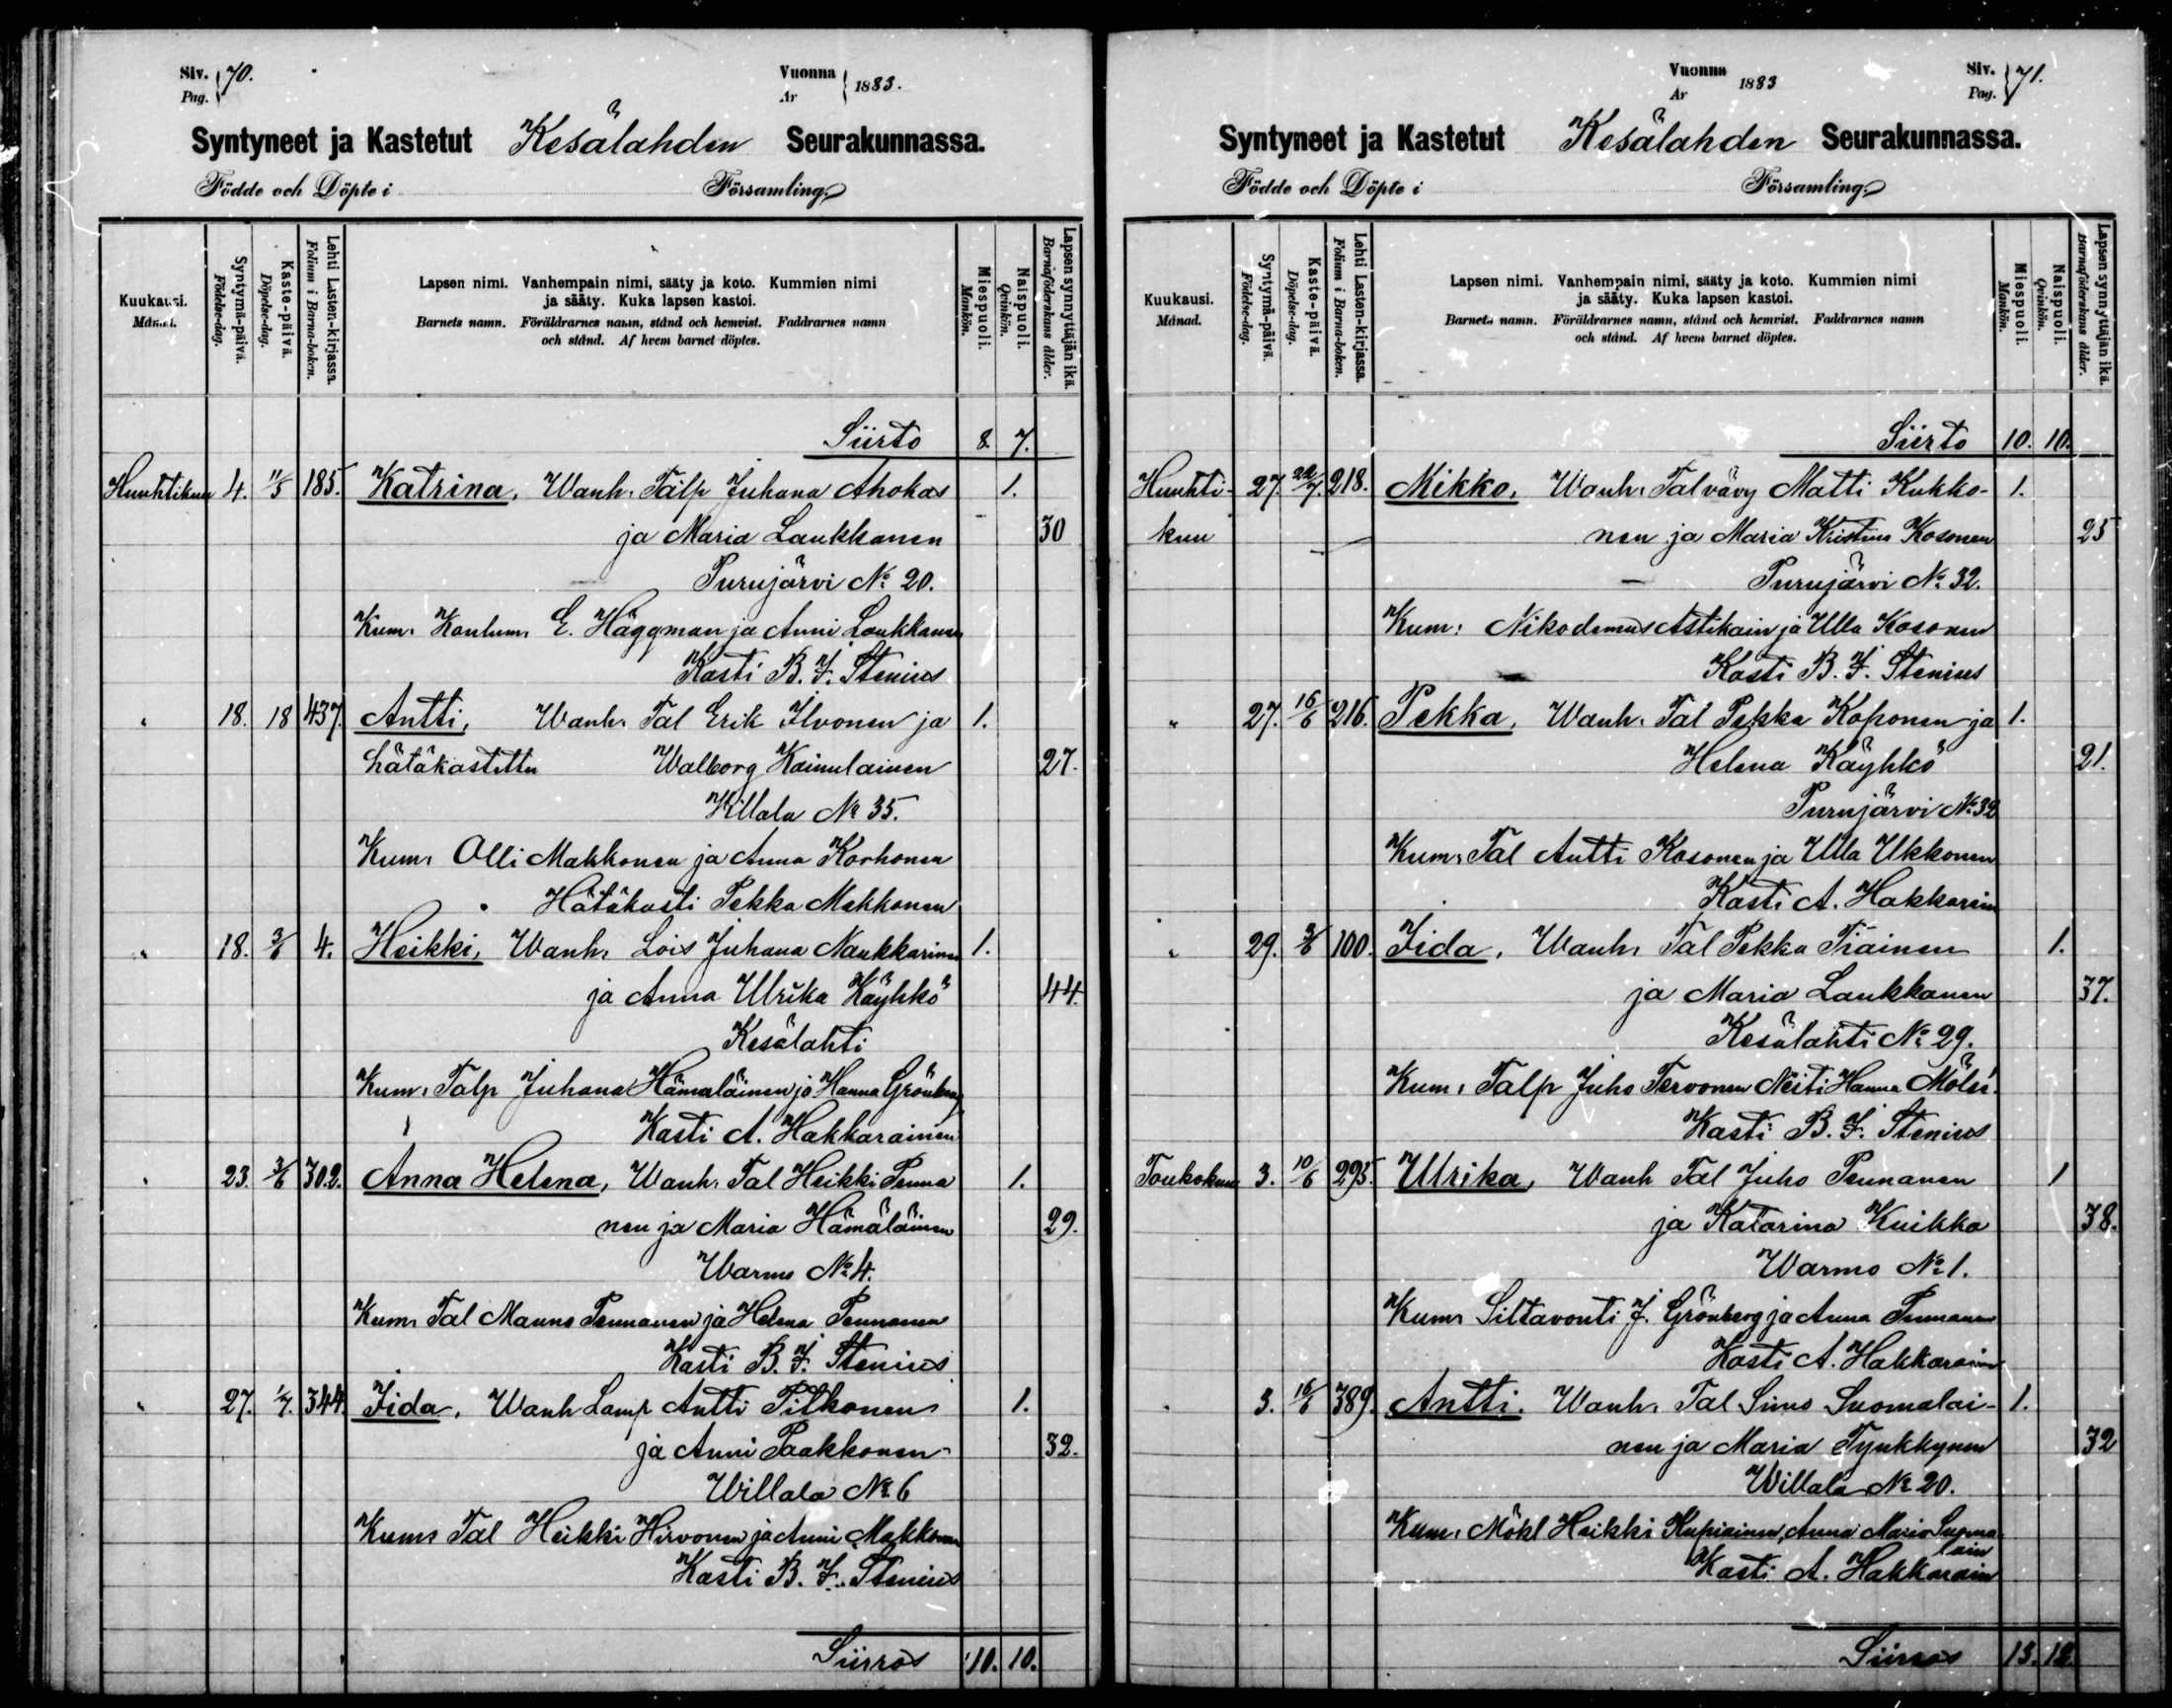 Siv. Pag. 70.
Vuonna Ar 1883.
Syntyneet ja Kastetut Kesälahden Seurakunnassa.
Födde och Döpte i Församling.
Kuukausi. Månad.
Syntymä-päivä. Födelse-dag.
Kaste-päivä. Döpelse-dag.
Lehti Lasten-kirjassa. Folium i Barna-boken.
Lapsen nimi. Vanhempain nimi, sääty ja koto. Kummien nimi
ja sääty. Kuka lapsen kastoi.
Barnets namn. Föräldrarnes namn, stånd och hemvist. Faddrarnes namn
och stånd. Af hvem barnet döptes.
Miespuoli. Mankön.
Naispuoli. Qvinkön.
Lapsen synnyttäjän ikä. Barnaföderskans ålder.
Siirto 8. 7.
Huuhtikuu 4. 11/5 185. Katrina, Wanh. Talp Juhana Ahokas 1.
ja Maria Laukkanen 30
Purujärvi No 20.
Kum. E. Häggman ja Anni Laukkanen
Kasti B. F. Stenius
" 18. 18 437. Antti, Wanh. Tal Erik Ilvonen ja 1.
hätäkastettu Walborg Kainulainen 27.
Villala No 35.
Kum. Olli Makkonen ja Anna Korhonen
Hätäkasti Pekka Makkonen
" 18. 3/6 4. Heikki, Wanh. Lois Juhana Naukkarinen 1.
ja Anna Ulrika Käyhkö 44
Kesälahti
Kum. Talp Juhana Hämäläinen ja Hanna Grönberg
Kasti A. Hakkarainen
" 23. 3/6 302. Anna Helena, Wanh. Tal Heikki Penna 1.
nen ja Maria Hämäläinen 29.
Warmo No 4.
Kum. Tal Manno Pennanen ja Helena Pennanen
Kasti B. F. Stenius
" 27. 1/7. 344. Iida, Wanh Lamp Antti Pitkonen 1.
ja Anni Paakkonen 32.
Willala No 6
Kum. Tal Heikki Hirvonen ja Anni Makkonen
Kasti B. F. Stenius
Siirros 10. 10.
Vuonna Ar 1883
Siv. Pag. 71.
Syntyneet ja Kastetut Kesälahden Seurakunnassa.
Födde och Döpte i Församling.
Kuukausi. Månad.
Syntymä-päivä. Födelse-dag.
Kaste-päivä. Döpelse-dag.
Lehti Lasten-kirjassa. Folium i Barna-boken.
Lapsen nimi. Vanhempain nimi, sääty ja koto. Kummien nimi
ja sääty. Kuka lapsen kastoi.
Barnets namn. Föräldrarnes namn, stånd och hemvist. Faddrarnes namn
och stånd. Af hvem barnet döptes.
Miespuoli. Mankön.
Naispuoli. Qvinkön.
Lapsen synnyttäjän ikä. Barnaföderskans ålder.
Siirto 10. 10.
Huuhti- 27. 22/7 218. Mikko, Wanh. Talvävy Matti Kukko- 1.
kuu nen ja Maria Kristina Kosonen 25
Purujärvi No 32.
Kum: Nikodemus Astikain ja Ulla Kosonen
Kasti B. F. Stenius
" 27. 16/6 216. Pekka, Wanh. Tal Pekka Koponen ja 1.
Helena Käyhkö 21.
Purujärvi No 32
Kum. Tal Antti Kosonen ja Ulla Ukkonen
Kasti A. Hakkarain
" 29. 3/6 100. Iida, Wanh. Tal Pekka Tiainen 1.
ja Maria Laukkanen 37.
Kesälahti No 29.
Kum. Talp Juho Tervonen Neiti Hanna Mölsi
Kasti B. F. Stenius
Toukokuu 3. 10/6 295. Ulrika, Wanh Tal Juho Pennanen 1
ja Katarina Kuikka 38.
Warmo No 1.
Kum. Siltavouti J. Grönberg ja Anna Pennanen
Kasti A. Hakkarain
" 3. 16/6 389. Antti. Wanh. Tal Simo Suomalai- 1.
nen ja Maria Tynkkynen 32
Willala No 20.
Kum. Mökl Heikki Kupiainen, Anna Maria Suoma
lain
Kasti A. Hakkarain
Siirros 13. 12.